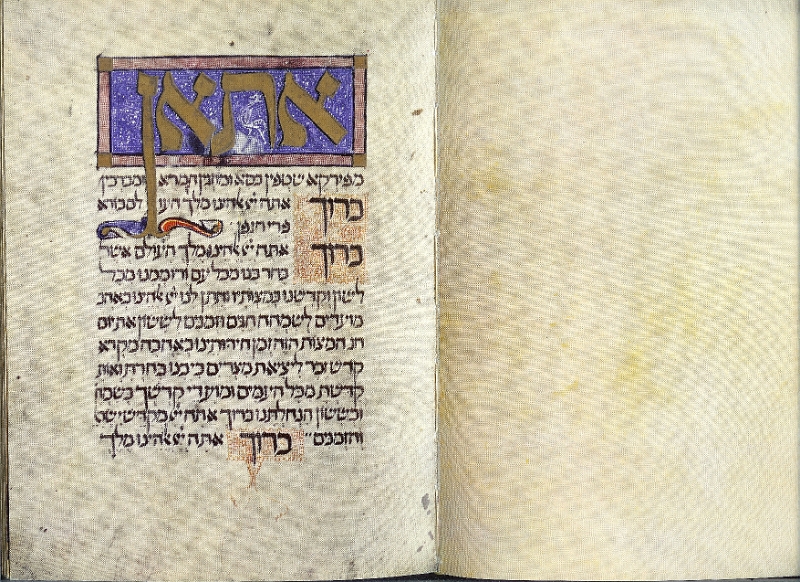 אתאן
מפירקא שטפין כסא ומוזגין חמרא ומברכין
ברוך אתה יי אלהינו מלך העו לם בורא
פרי הגפן
ברוך אתה יי אלהינו מלך העולם אשר
בחר בנו מכל עם ורוממנו מכל
לשון וקדשנו במצותיו ותתן לנו יי אלהינו באהב
מועדים לשמחה חגים וזמנים לששון את יום
חג המצות הזה זמן חירותינו באהבה מקרא
קדש זכר ליציאת מצרים כי בנו בחרת ואות
קדשת מכל העמים ומועדי קדשך בשמח
ובששון הנחלתנו ברוך אתה יי מקדש
והזמנים ברוך אתה יי אלהינו מלך